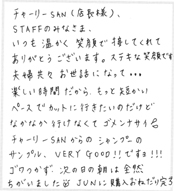 チャーリーSAN(店長様)、
STAFFのみなさま、
いつも温かく笑顔で接してくれて
ありがとうございます。ステキな笑顔です
夫婦共々お世話になって…
楽しい時間だから、もっと短かい
ペースでカットに行きたいのだけど
なかなか行けなくてゴメンナサイ
チャーリーSANからのシャンプーの
サンプル、VERY GOOD!!ですョ!!!
ゴワつかず、次の日の朝は全然
ちがいました JUNに購入おねだり完了